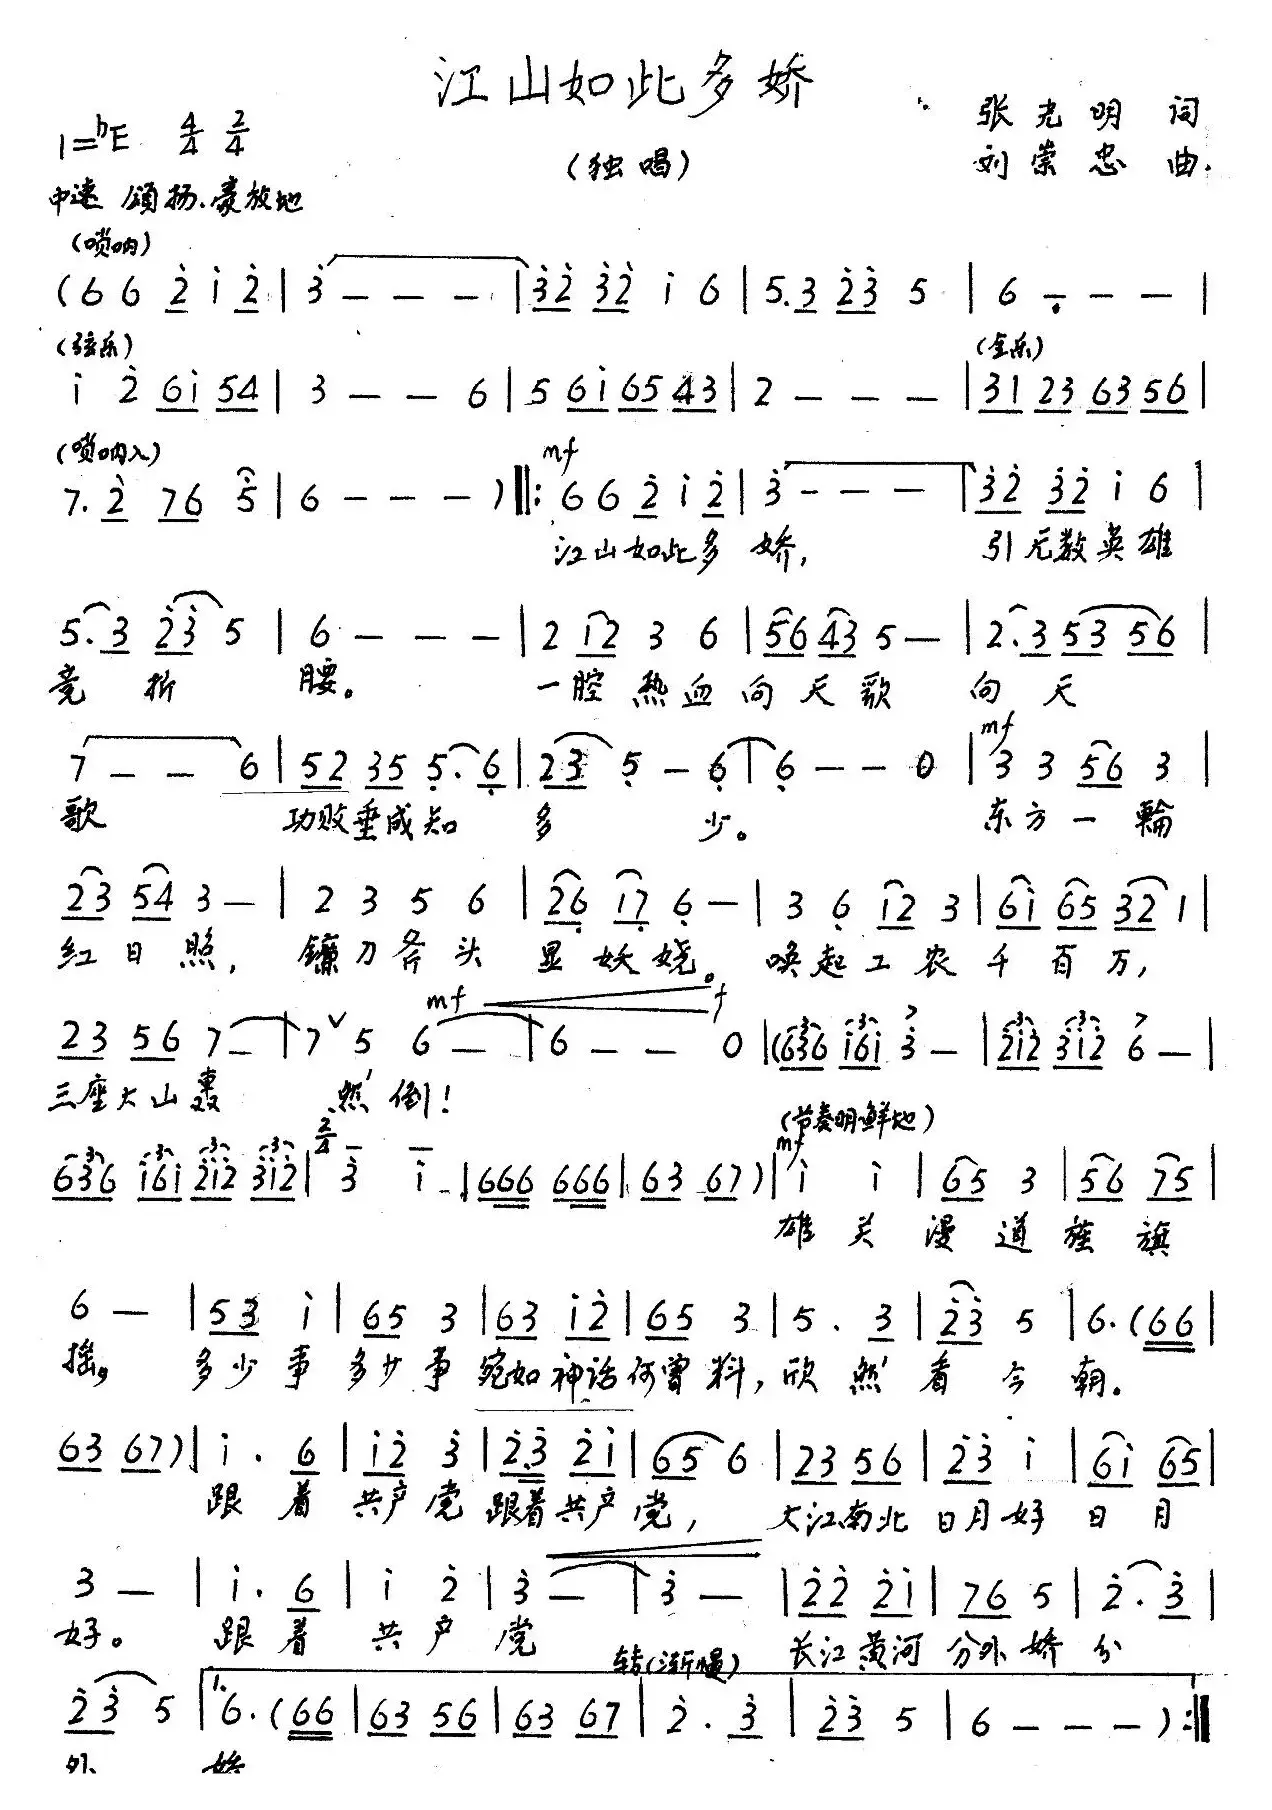 江山如此多娇
1=♭E 4/4 2/4
(独唱)
张光明 词
刘崇忠 曲.
中速 颂扬、豪放地
(唢呐)
(6 6 2̇ i 2̇ | 3̇ - - - | 3̇2̇ 3̇2̇ i 6 | 5.3 2̇3̇ 5 | 6 - - - |
(弦乐) (全乐)
i 2̇ 6i 54 | 3 - - 6 | 5 6i 65 43 | 2 - - - | 31 23 63 56 |
(唢呐入) mf
7. 2̇ 76 5̇ | 6 - - - ) ‖: 6 6 2̇ i 2̇ | 3̇ - - - | 3̇2̇ 3̇2̇ i 6 |
江山如此多娇, 引无数英雄
5.3 2̇3̇ 5 | 6 - - - | 2 12 3 6 | 56 43 5 - | 2.3 53 56 |
竞折腰。 一腔热血向天歌 向天
mf
7 - - 6 | 52 35 5̣.6̣ | 23 5̣ - 6̣ | 6̣ - - 0 | 3 3 56 3 |
歌 功败垂成知多少。 东方一輪
23 54 3 - | 2 3 5 6 | 26̣ 17̣ 6̣ - | 3 6̣ 12 3 | 6i 65 32 1 |
红日照, 镰刀斧头显妖娆。 唤起工农千百万,
mf f
23 56 7 - | 7 ∨ 5 6 - | 6 - - 0 | (636 i6i 3̇ - | 2̇i2̇ 3̇i2̇ 6 - |
三座大山轰 然倒!
(节奏明鲜地)
mf
636 i6i 2̇i2̇ 3̇i2̇ | 2/4 3̇ i | 666 666 | 63 67) | i i | 65 3 | 56 75 |
雄关漫道旌旗
6 - | 53 i | 65 3 | 63 i2̇ | 65 3 | 5 . 3 | 2̇3̇ 5 | 6. (66 |
摇, 多少事 多少事 宛如神话何曾料, 欣然看今朝。
63 67) | i . 6 | i2̇ 3̇ | 2̇.3̇ 2̇i | 65 6 | 23 56 | 2̇3̇ i | 6i 65 |
跟着共产党 跟着共产党, 大江南北日月好日月
3 - | i . 6 | i 2̇ | 3̇ - | 3̇ - | 2̇2̇ 2̇i | 76 5 | 2̇ . 3̇ |
好。 跟着共产党 长江黄河分外娇分
转(渐慢)
2̇3̇ 5 | 1. 6. (66 | 63 56 | 63 67 | 2̇ . 3̇ | 2̇3̇ 5 | 6 - - - ) :‖
外 娇